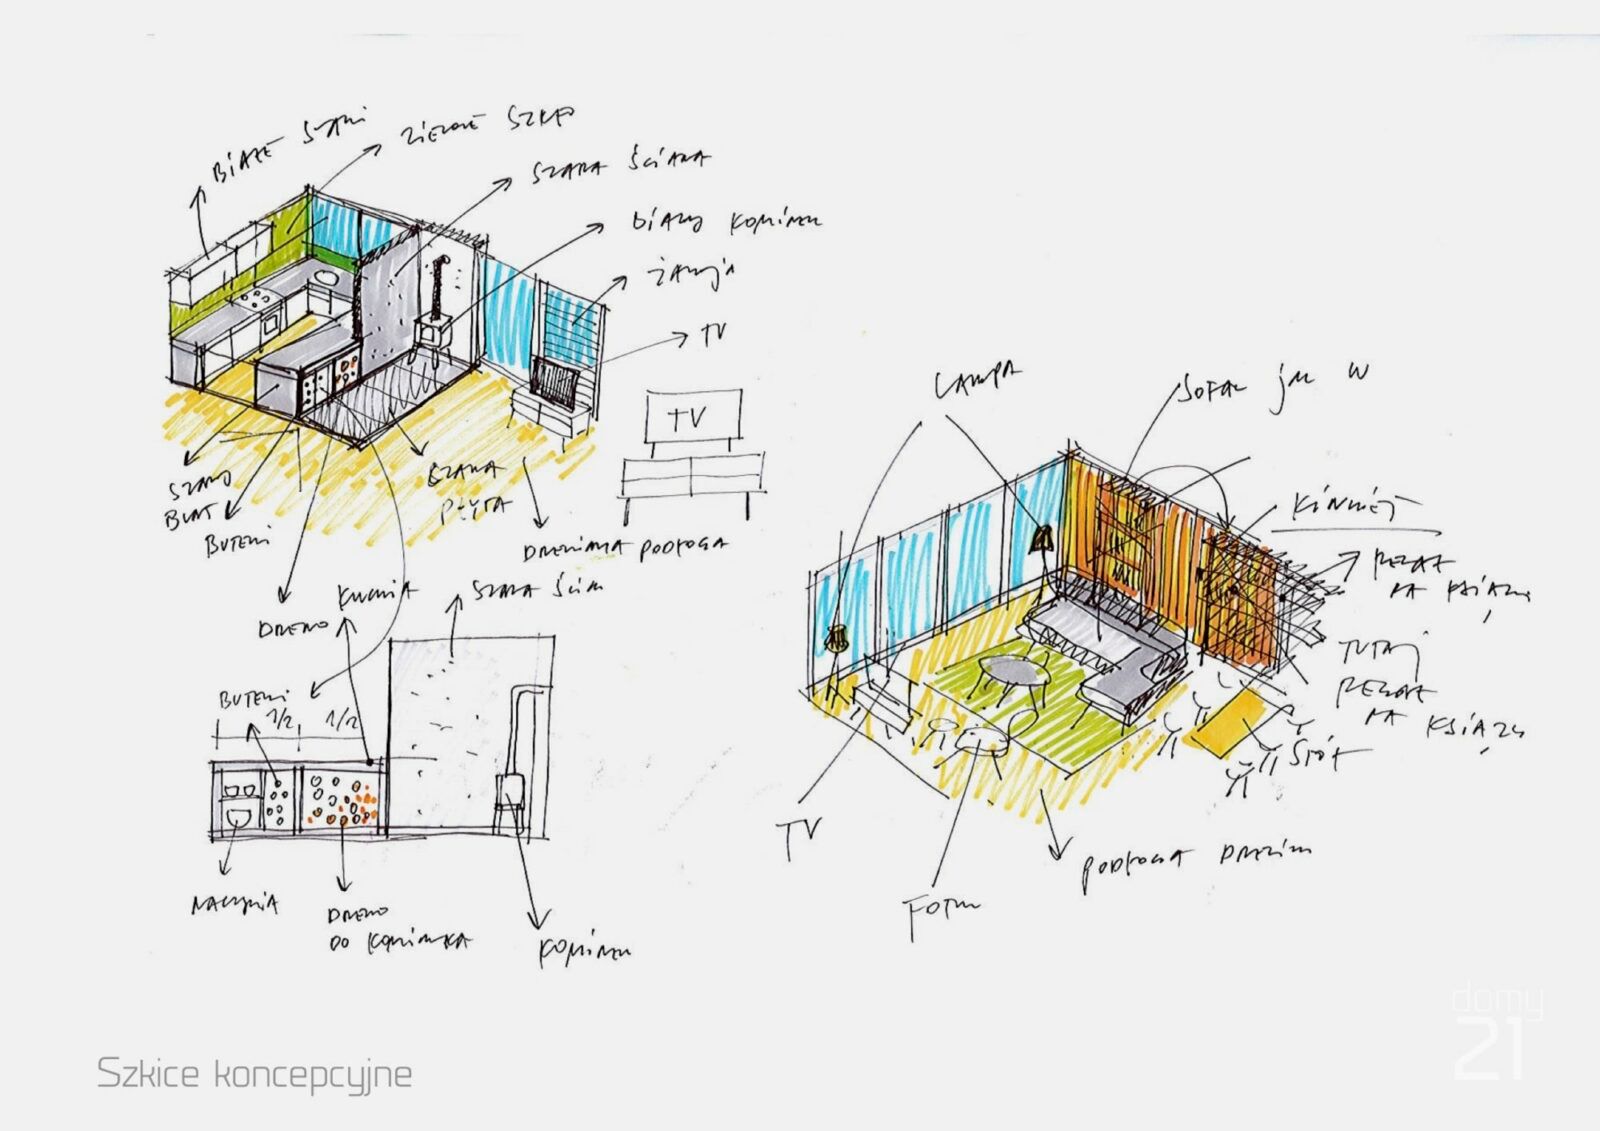 BIAŁE SZAFKI
ZIELONE SZKŁO
SZARA ŚCIANA
BIAŁY KOMINEK
ŻALUZJA
TV
TV
SZARY
BLAT
BUTELKI
SZARA
PŁYTA
DREWNIANA PODŁOGA
DREWNO
KUCHNIA
SZARA ŚCIANA
BUTELKI
1/2 1/2
NACZYNIA
DREWNO
DO KOMINKA
KOMINEK
LAMPA
SOFA JAK W
KINKIET
REGAŁ
NA KSIĄŻKI
TUTAJ
REGAŁ
NA KSIĄŻKI
STÓŁ
TV
FOTEL
PODŁOGA DREWNIANA
domy
21
Szkice koncepcyjne